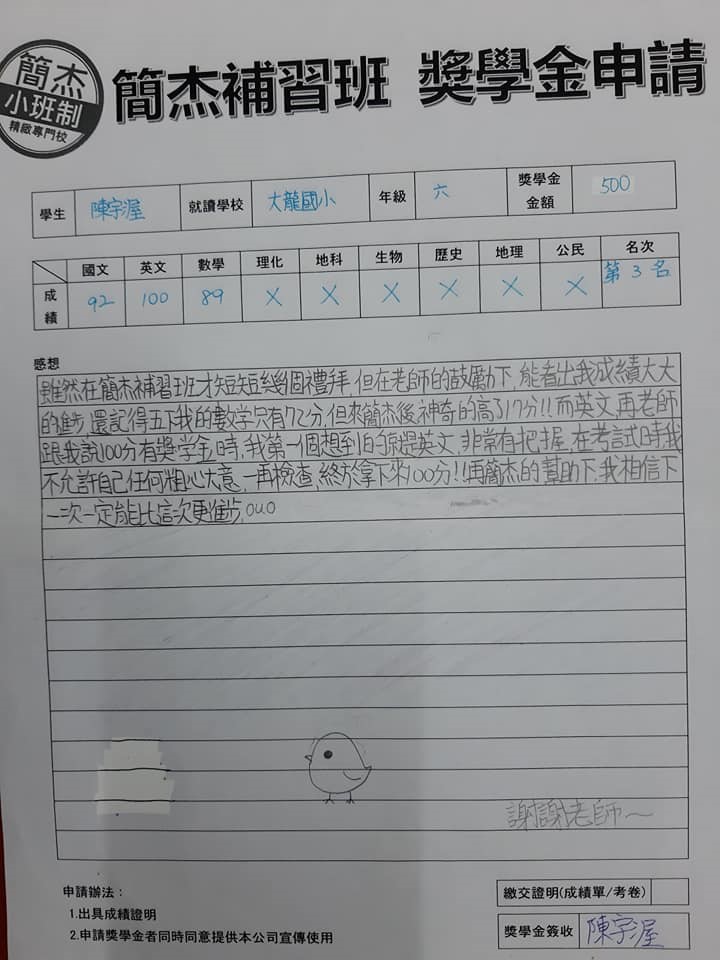 簡杰
小班制
精緻專門校
簡杰補習班 獎學金申請
學生 陳宇渥 就讀學校 大龍國小 年級 六 獎學金金額 500
國文 英文 數學 理化 地科 生物 歷史 地理 公民 名次
成績 92 100 89 X X X X X X 第3名
感想
雖然在簡杰補習班才短短幾個禮拜,但在老師的鼓勵下,能看出我成績大大
的進步,還記得五下我的數学只有72分,但來簡杰後神奇的高了17分!!而英文,再老師
跟我說100分有獎学金時,我第一個想到的就是英文,非常有把握,在考試時我
不允許自己任何粗心大意,一再檢查,終於拿下來100分!!再簡杰的幫助下,我相信下
一次一定能比這次更進步,OuO
謝謝老師~
申請辦法:
1.出具成績證明
2.申請獎學金者同時同意提供本公司宣傳使用
繳交證明(成績單/考卷)
獎學金簽收 陳宇渥